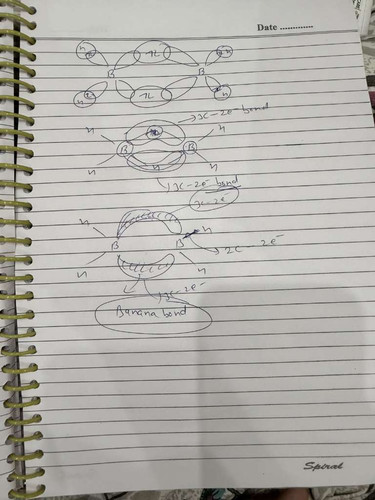 Date ..............
H H
H H
B B
H H
H H
3C-2e⁻ bond
H H
B H B
H H H
3C-2e⁻ bond
3C-2e⁻
H H
B B
2C-2e⁻
H H
3C-2e⁻
Banana bond
Spiral